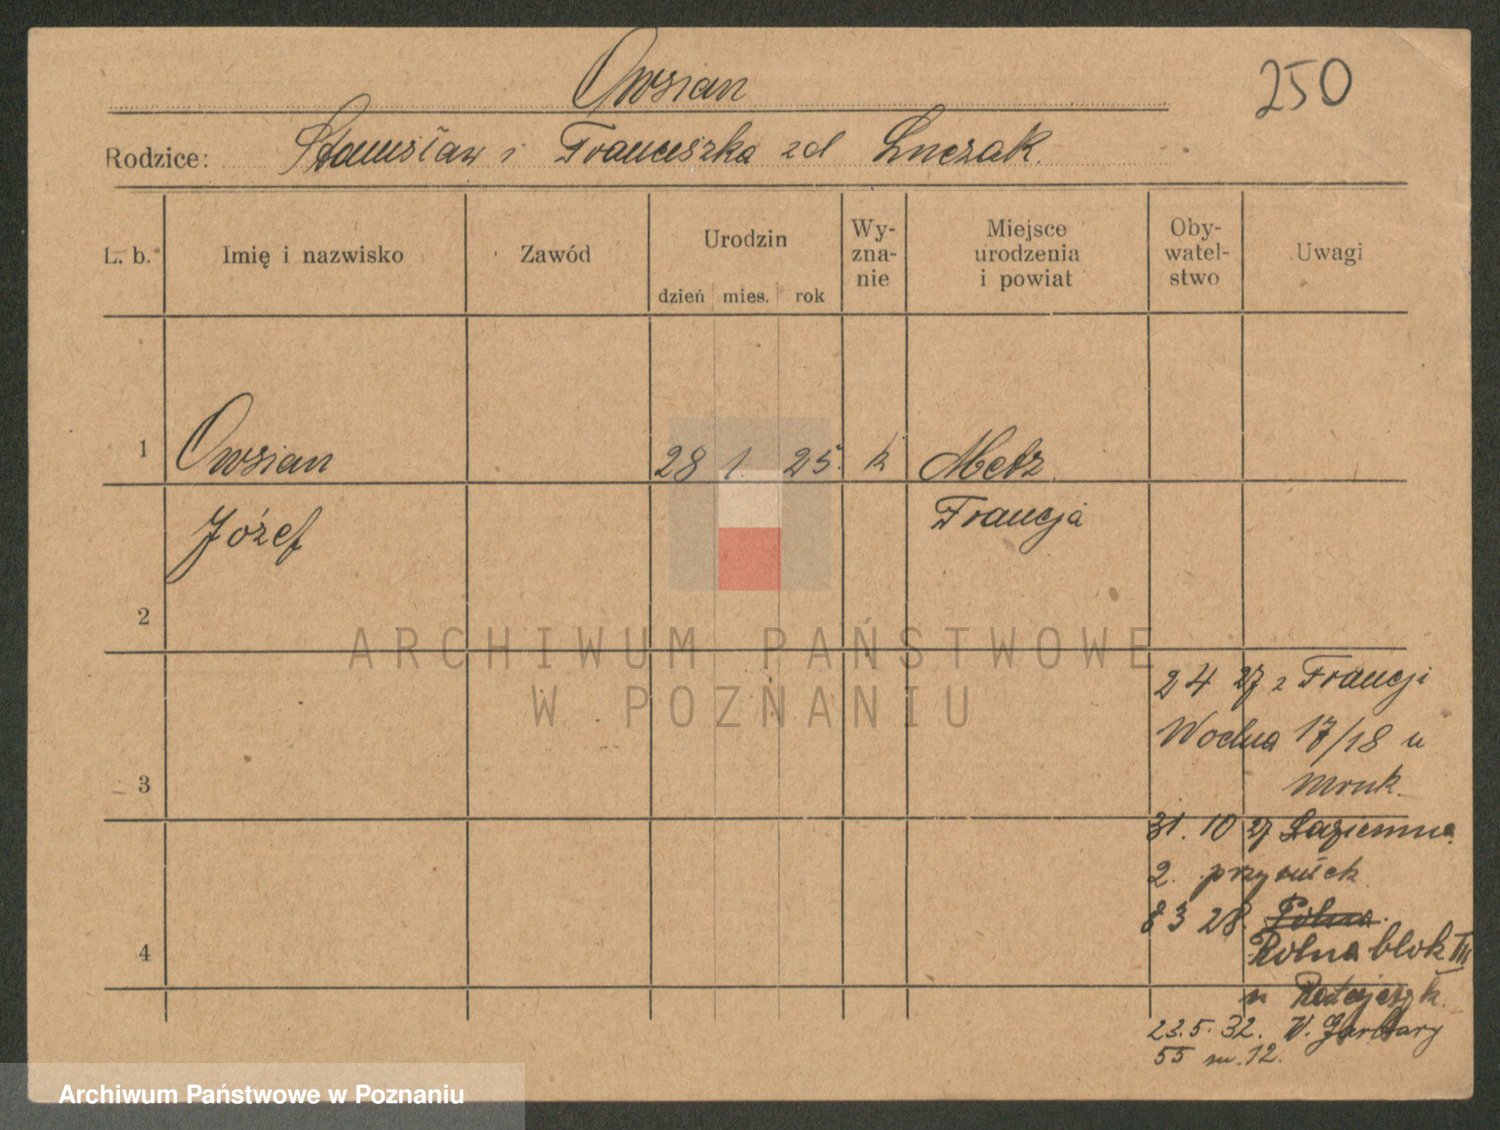 Owsian
250
Rodzice: Stanisław i Franciszka zd Łuczak.
L. b. Imię i nazwisko Zawód Urodzin dzień mies. rok Wy-zna-nie Miejsce urodzenia i powiat Oby-watel-stwo Uwagi
1 Owsian 28 1. 25. k Metz.
Józef Francja
2
ARCHIWUM PAŃSTWOWE
W POZNANIU
2 4 27 z Francji
Wodna 17/18 u
Mruk.
3
31. 10 27 Łazienna
2. przytułek
8 3 28. Polna
Rolna blok III
4
u Ratajczk.
23.5.32. W. Garbary
55 m. 12.
Archiwum Państwowe w Poznaniu